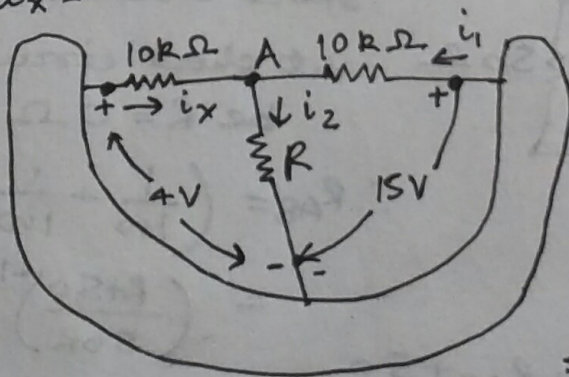 10kΩ A 10kΩ i₁
+ → iₓ ↓ i₂ +
R
4V 15V
- -